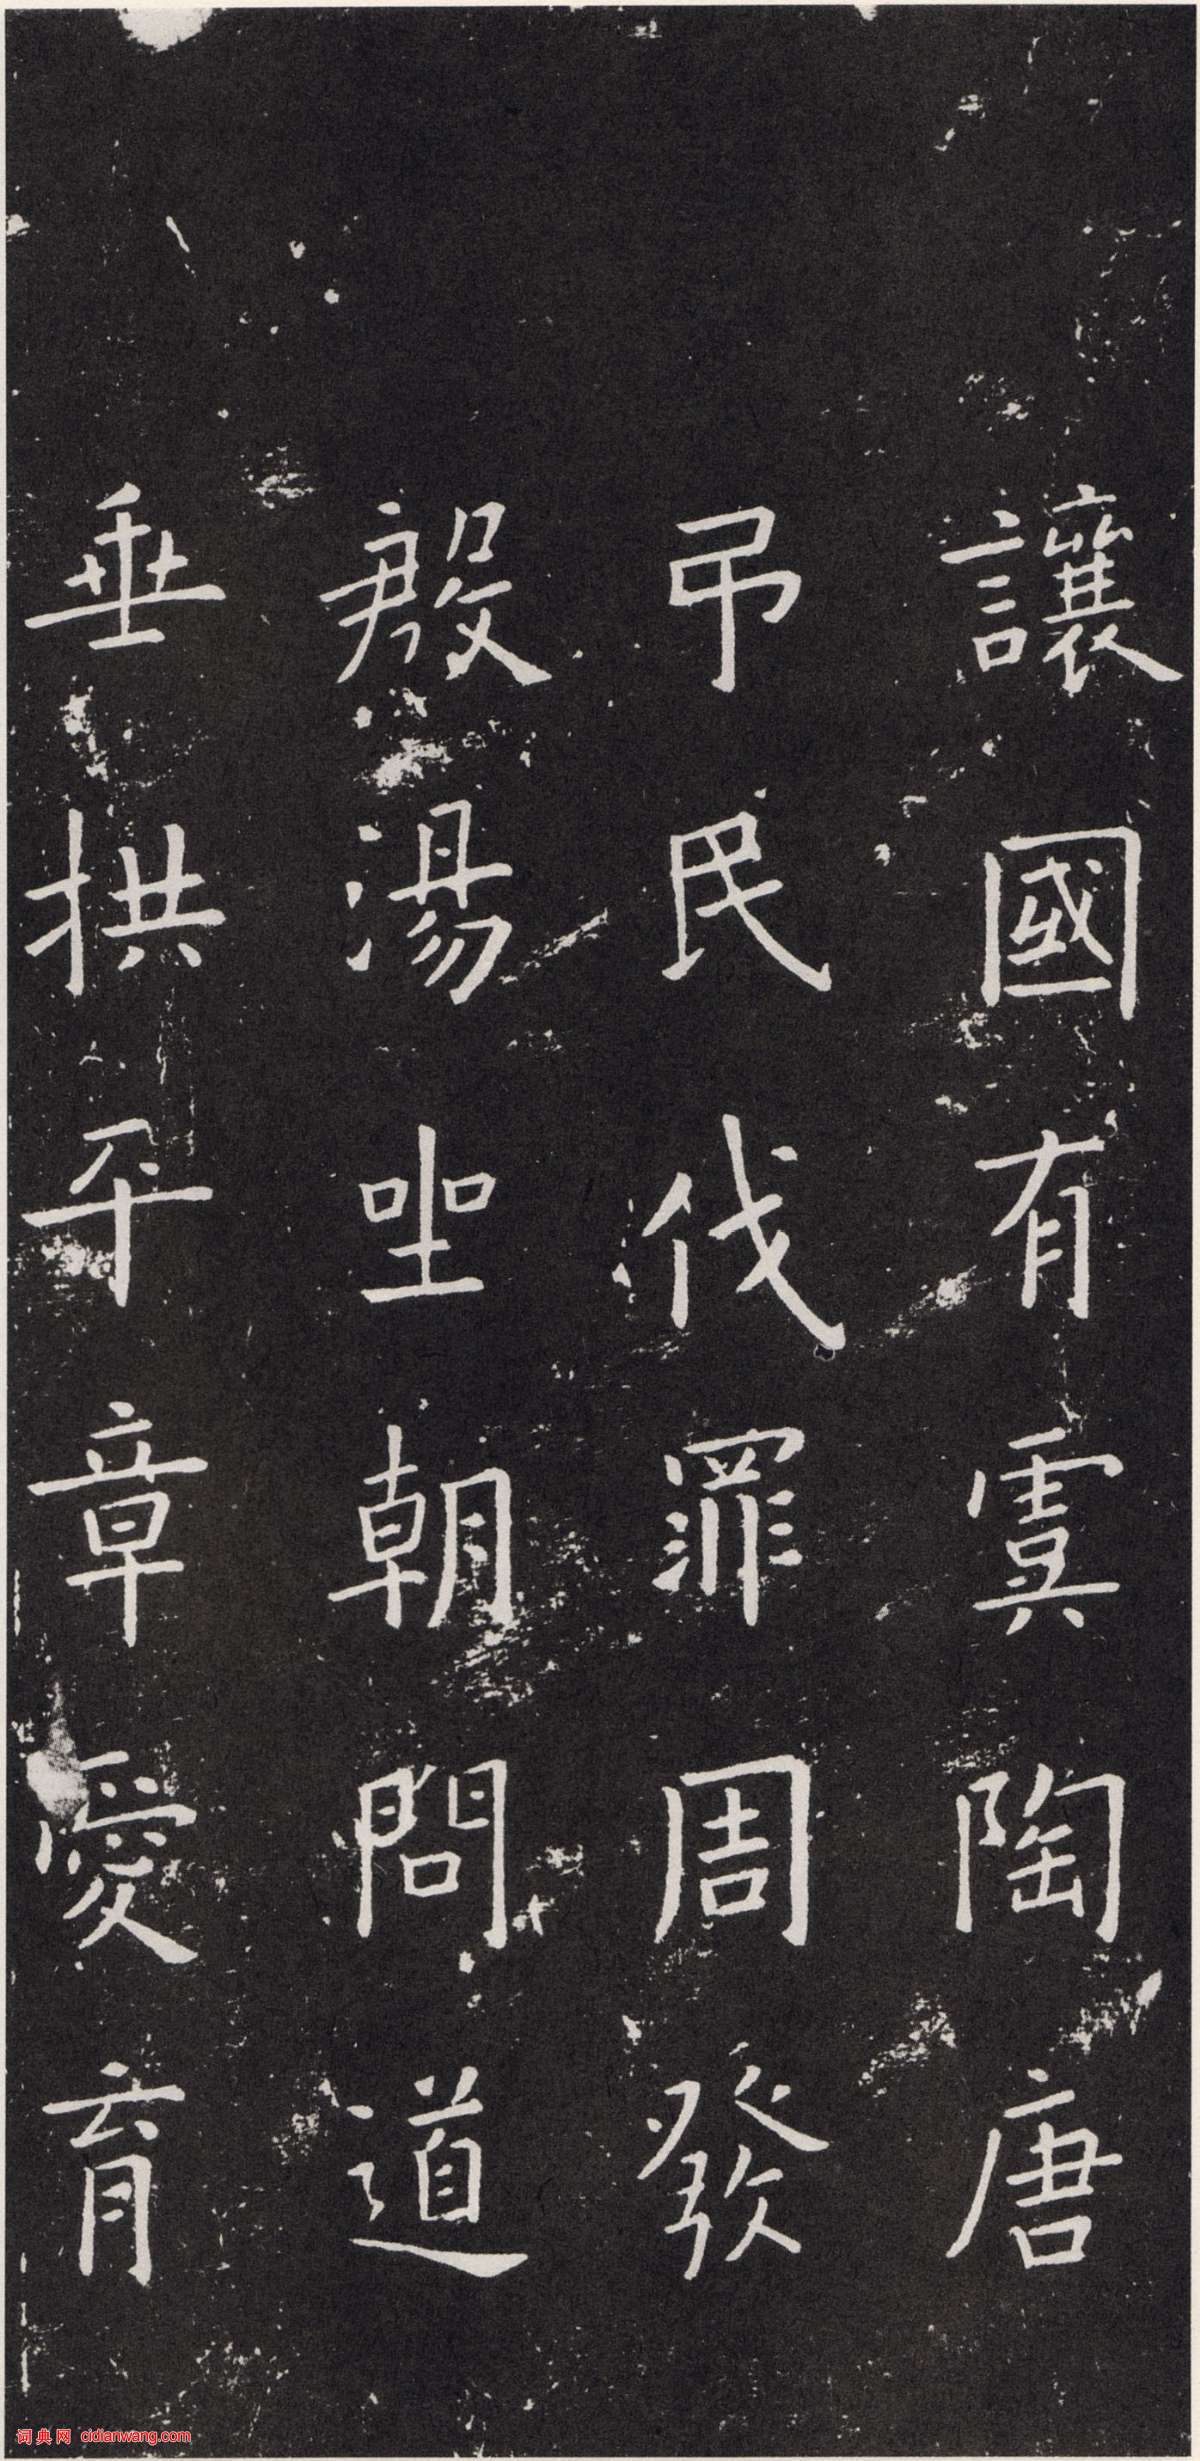 讓國有虞陶唐
弔民伐罪周發
殷湯坐朝問道
垂拱平章愛育
词典网 cidianwang.com